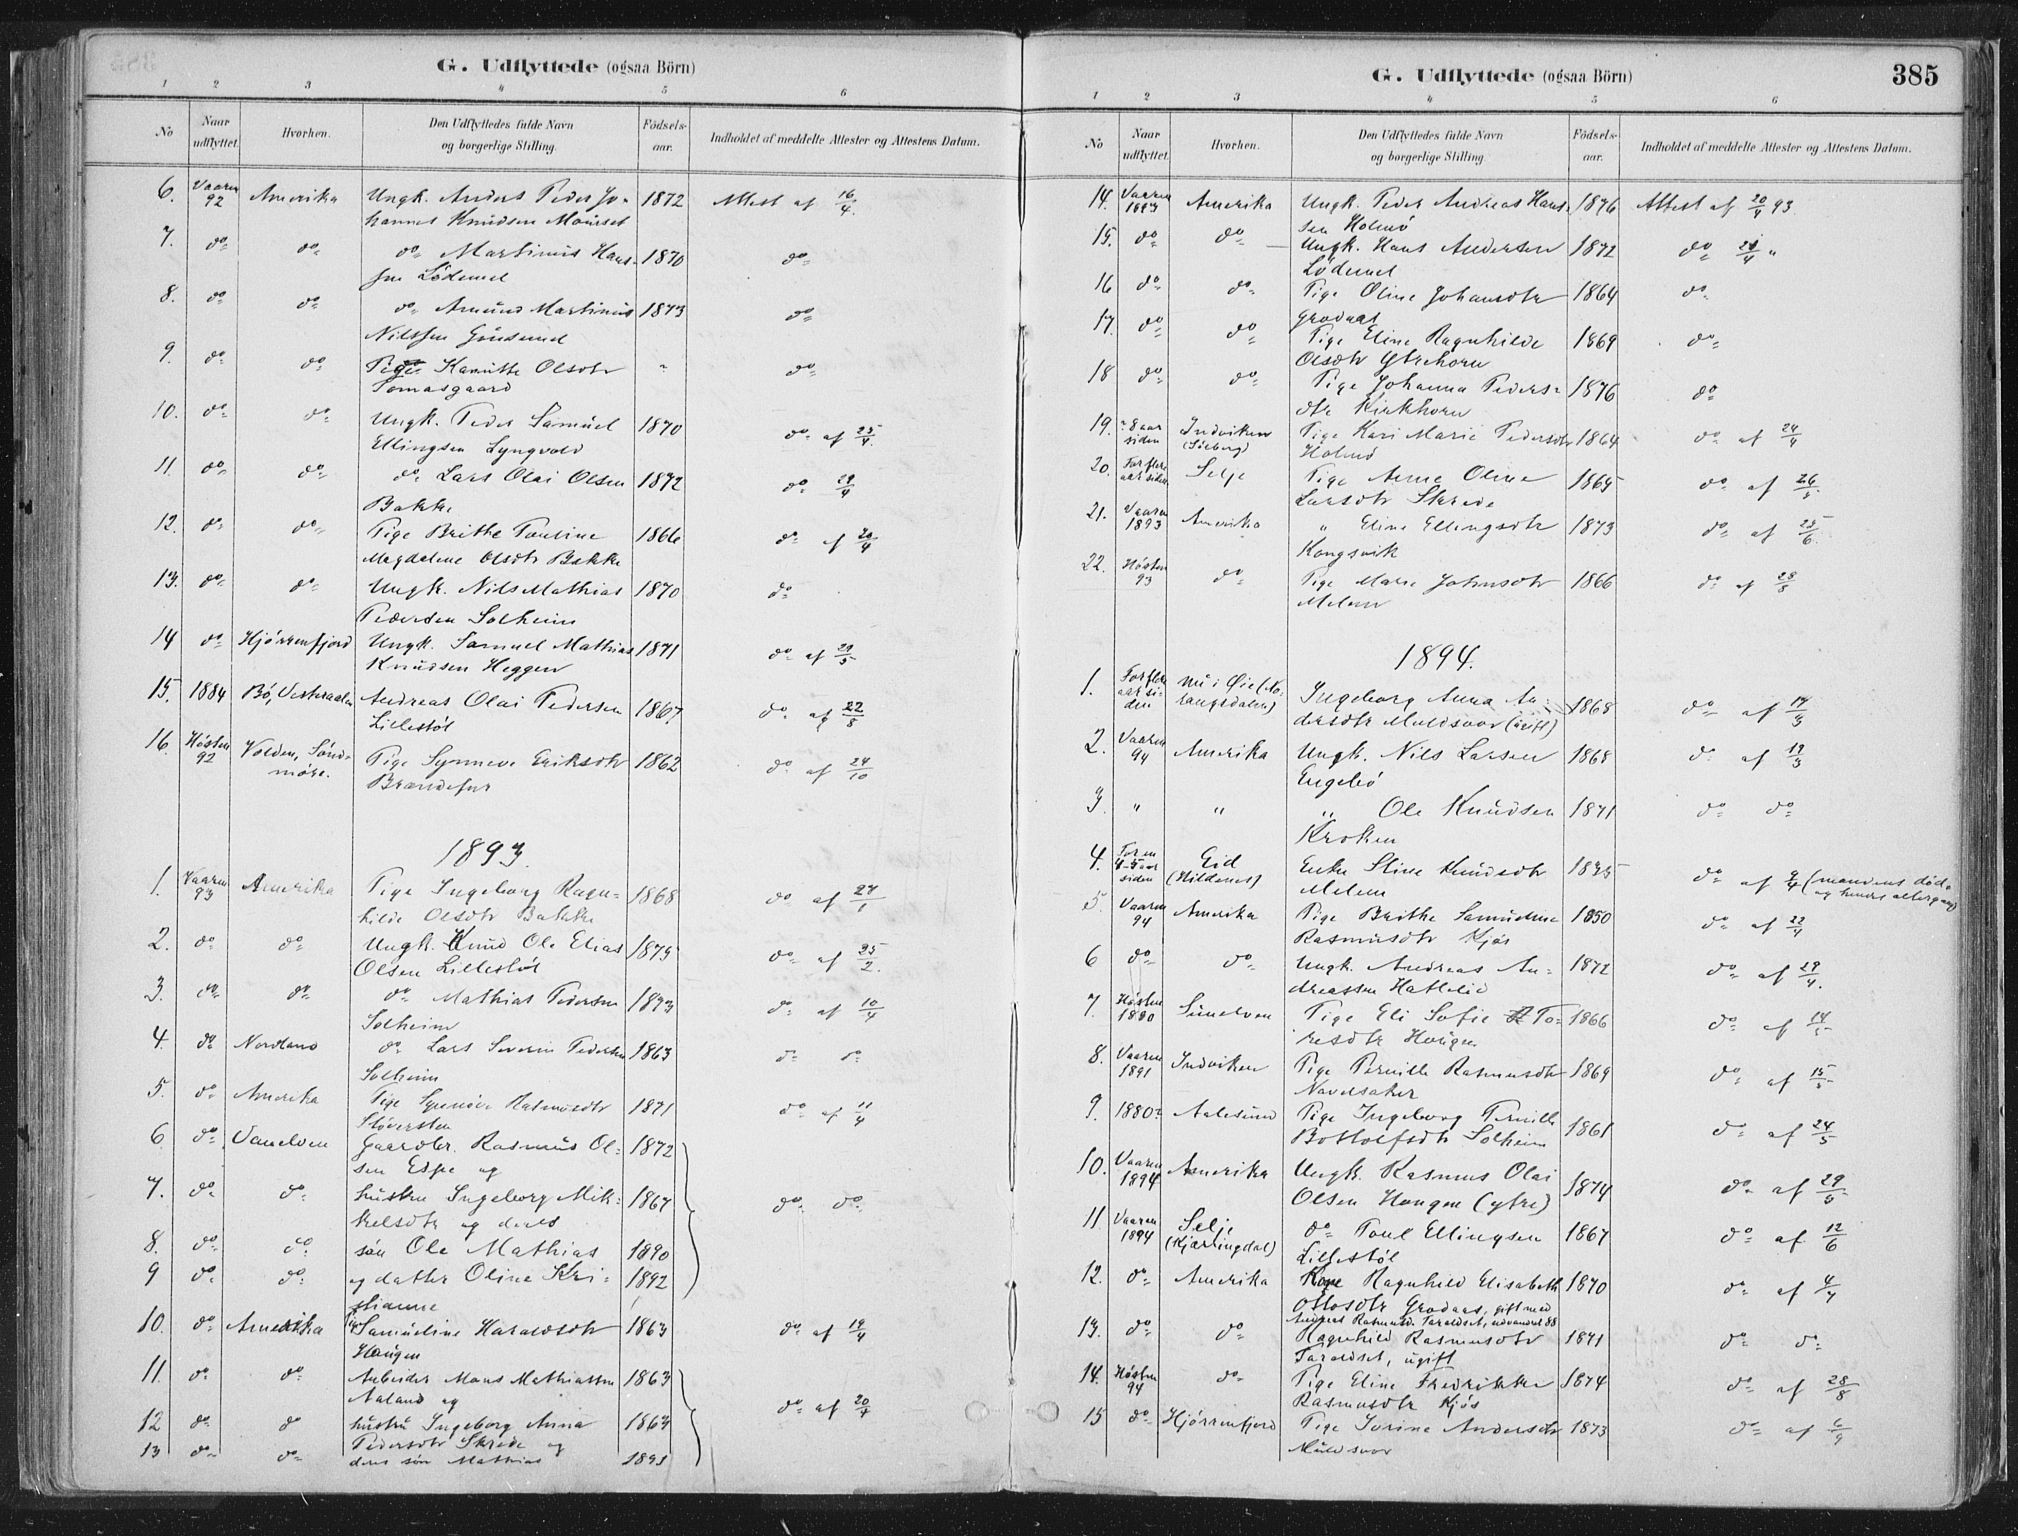 G. Udflyttede (ogsaa Börn)
1 2 3 4 5 6
No Naar udflyttet. Hvorhen. Den Udflyttedes fulde Navn og borgerlige Stilling. Födsels-aar. Indholdet af meddelte Attester og Attestens Datum.
6. Vaaren 92 Amerika Ungk. Anders Peder Jo- 1872 Attest af 16/4.
hannes Knudsen
7. do do do Martinus Hans- 1870 do
sen Lödemel
8. do do do Amund Martinus 1873 do
Nilssen
9. do do Pige Olsdtr " do
Tomasgaard
10. do do Ungk. Peder Samuel 1870 do af 25/4
Ellingsen Lyngvold
11. do do do Lars Olai Olsen 1872 do 29/4
Bakke
12. do do Pige Brithe Pauline 1866 do af 20/4
Magdalene Olsdtr Bakke
13. do do Ungk. Nils Mathias 1870 do
Pedersen Solheim
14 do Hjörrenfjord Ungk. Samuel Mathias 1871 do af 29/5
Knudsen Heggen
15. 1884 Bö, Vesteraalen Andreas Olai Pedersen 1867 do af 22/8
Lillestöl
16. Hösten 92 Volden, Sönd- Pige Synneve Eriksdtr 1862 do af 24/10
möre. Brændefur
1893.
1. Vaaren 93 Amerika Pige Ingeborg Ragn- 1868 do af 27/1
hilde Olsdtr Bakke
2. do do Ungk. Knud Ole Elias 1875 do af 25/2.
Olsen Lillestöl
3. do do do Mathias Pedersen 1873 do af 10/4
Solheim
4. do Nordland do Lars Severin Pedersen 1863 do do
Solheim
5. do Amerika Pige Synnöve Rasmusdtr 1871 do af 11/4
Stöversten
6 do Vanelven Gaardbr. Rasmus Ol- 1872
sen Espe og
7. do do hustru Ingeborg Mik- 1867 do do
kelsdtr og deres
8. do do sön Ole Mathias 1890
9 do do og datter Oline Kri- 1892
stianne
10. do Amerika Samueline Haraldsdtr 1863 do af 19/4
Haugen
11. do do Arbeider Mons Mathiassen 1863
Aaland og do af 20/4
12 do do hustru Ingeborg Anna 1863
Pedersdtr Skrede og
13 do do deres sön Mathias 1891
G. Udflyttede (ogsaa Börn) 385
1 2 3 4 5 6
No Naar udflyttet. Hvorhen. Den Udflyttedes fulde Navn og borgerlige Stilling. Födsels-aar. Indholdet af meddelte Attester og Attestens Datum.
14. Vaaren 1893 Amerika Ungk. Peder Andreas Han- 1876 Attest af 20/4 93.
sen Holmö
15. do do Ungk. Hans Andersen 1872 do 21/4 "
Lödemel
16 do do Pige Oline Johansdtr 1864 do
Grodaas
17. do do Pige Eline Ragnhilde 1869 do
Olsdtr Ytrehorn
18 do do Pige Johanna Peders- 1876 do
dtr Kirkhorn
19. 8 aar siden Indviken Pige Kari Marie Pedersdtr 1864 do af 24/4
20. For flere aar siden Selje Pige Anne Oline 1865 do af 26/5.
Larsdtr Skrede
21. Vaaren 1893 Amerika " Eline Ellingsdtr 1873 do af 25/6.
Kongsvik
22. Hösten 93 do Pige Marie Johnsdtr 1866 do af 28/8
Melem
1894.
1. For flere aar siden nu i Öie (No- Ingeborg Anna An- 1868 do af 14/3
rangsdalen) dersdtr Muldsvor (gift)
2. Vaaren 94 Amerika Ungk. Nils Larsen 1868 do af 19/3
Engebö
3. " " " Ole Knudsen 1871 do do
Kroken
4. For en 4-5 aar siden Eid Enke Stine Knudsdtr 1835 do af 9/4 (mandens död.
(Hildenes) Melem og hendes altergang)
5. Vaaren 94 Amerika Pige Brithe Samueline 1850 do af 22/4
Rasmusdtr Kjös
6 do do Ungk. Andreas An- 1872 do af 29/4.
dreassen Hatlelid
7. Hösten 1880 Sunelven Pige Eli Sofie To- 1866 do af 14/5
resdtr Haugen
8. Vaaren 1891 Indviken Pige Pernille Rasmusdtr 1869 do af 15/5
Navelsaker
9. 1880 Aalesund Pige Ingeborg Pernille 1861 do af 24/5
Bottolfsdtr Solheim
10. Vaaren 1894 Amerika Ungk. Rasmus Olai 1874 do af 29/5
Olsen Haugen (ytre)
11 Vaaren 1894 Selje do Poul Ellingsen 1867 do af 12/6
(Kjærringdal) Lillestöl
12. do Amerika Kone Ragnhild Elisabeth 1870 do af 4/7
Ottosdtr Grodaas, gift med
Andreas Rasmusd. Taraldset, udvandret 88
13. do do Ragnhild Rasmusdtr 1871 do do
Taraldset, ugift
14. Hösten 94 do Pige Eline Fredrikke 1874 do af 28/8
Rasmusdtr Kjös
15 do Hjörrenfjord Pige Sorine Andersdtr 1873 do af 6/9
Muldsvor